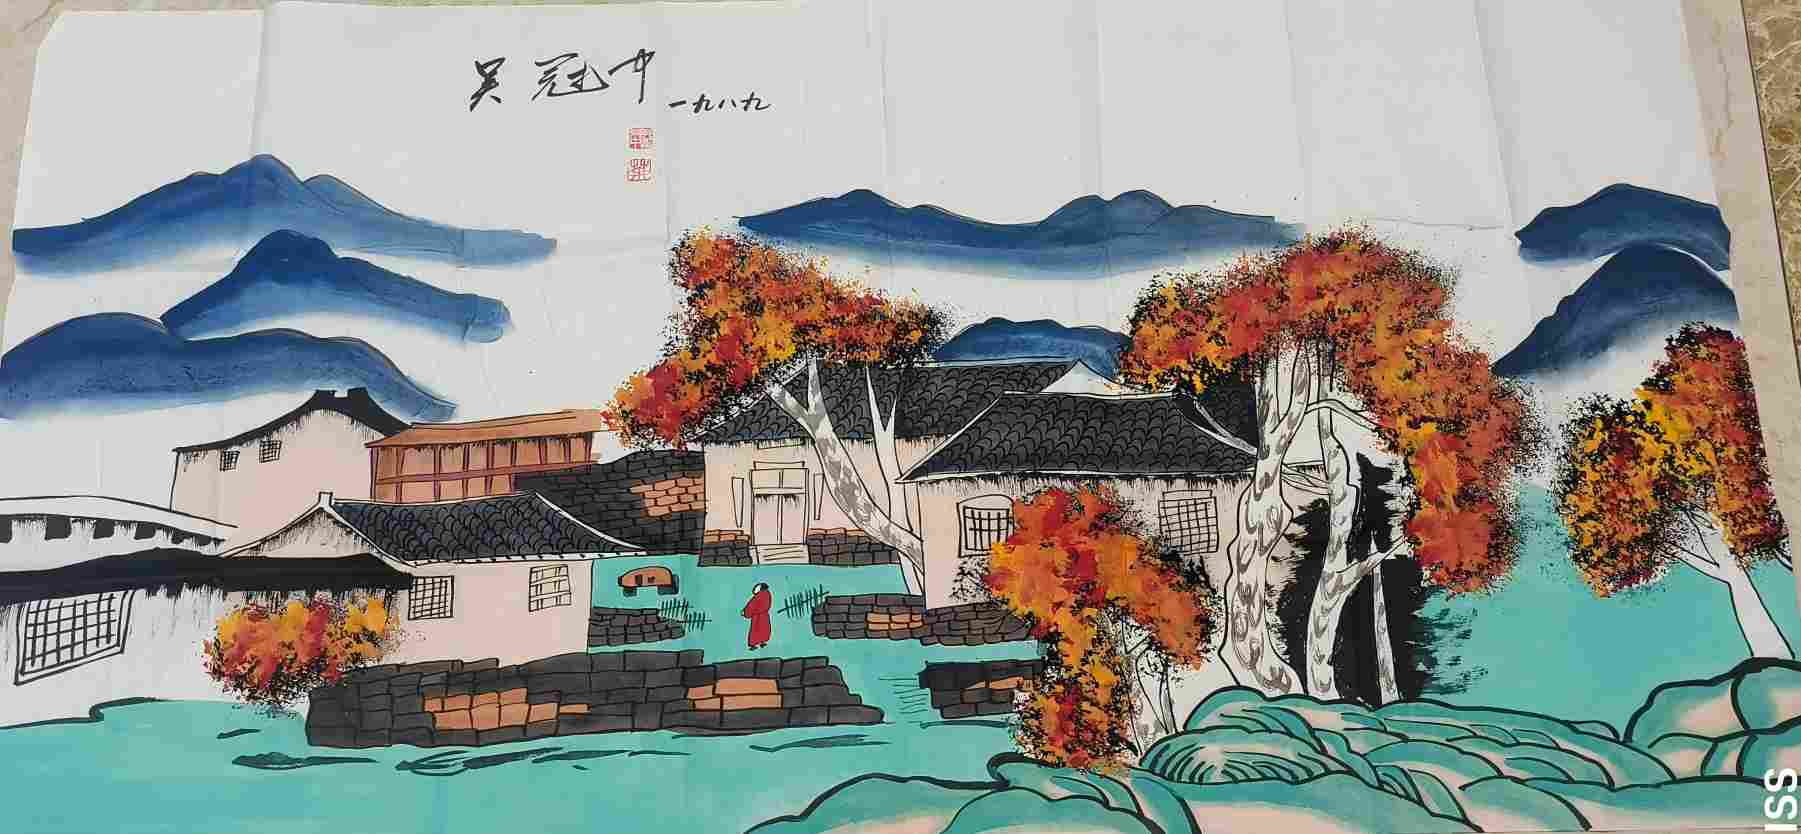 吴冠中
一九八九
ISS